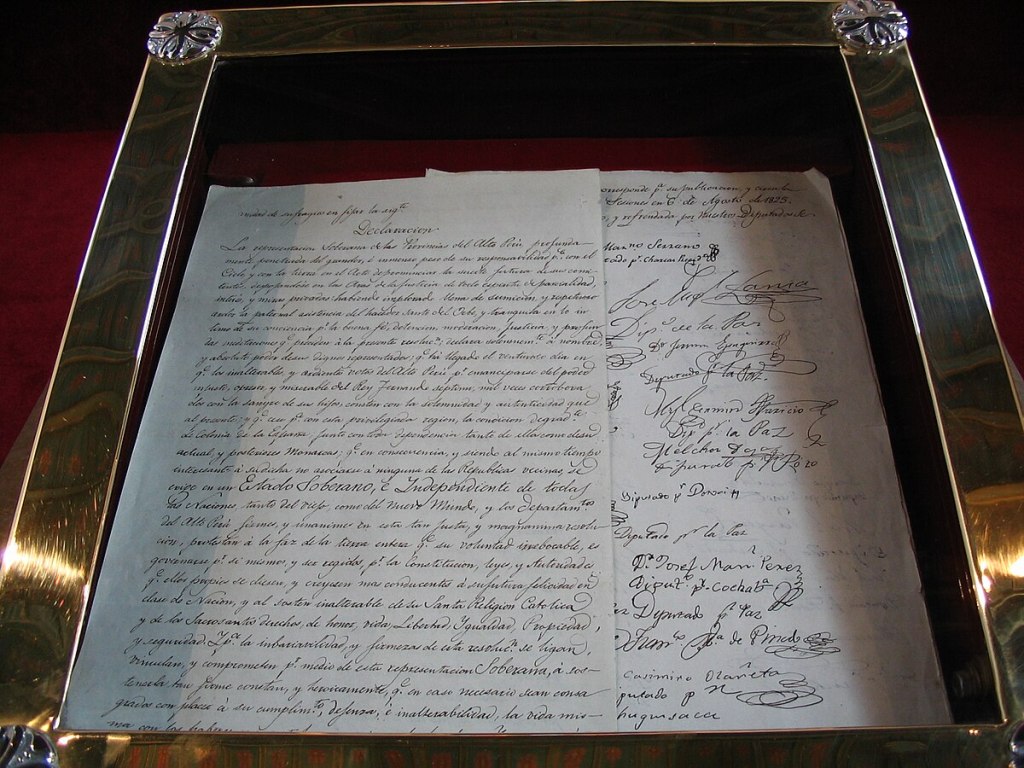 modos de sufragios en fijar la sigte
Declaracion
La representacion Soberana de las Provincias del Alto Perú profunda-
mente penetrada del grandor, é inmenso peso de su responsabilidad pa. con el
Cielo, y con la tierra en el Acto de pronunciar la suerte futura de sus comi-
tentes, despojandose en las Aras de la Justicia de todo espiritu de parcialidad,
interes, y miras privadas habiendo implorado llena de sumicion, y respetuoso
ardor la paternal asistencia del hacedor Santo del Orbe, y tranquila en lo in-
timo de su conciencia pr. la buena fé, detencion, moderacion, Justicia, y profun-
das meditaciones q. presiden á la presente resolucn. declara solemnemte. á nombre,
y absoluto poder de sus dignos representados: q. há llegado el venturoso dia en
q. los inalterables, y ardientes votos del Alto Perú pr. emanciparse del poder
injusto, opresor, y miserable del Rey Fernando septimo, mil veces corrobora-
dos con la sangre de sus hijos, consten con la solemnidad, y autenticidad que
al presente, y q. cese pa. con esta privilegiada region, la condicion degradte.
de Colonia de la España, junto con toda dependencia, tanto de ella, como de su
actual, y posteriores Monarcas: q. en consecuencia, y siendo al mismo tiempo
interesante á su dicha no asociarse á ninguna de las Republicas vecinas se
erige en un Estado Soberano, é Independiente de todas
las Naciones, tanto del viejo, como del Nuevo Mundo, y los Departamtos
del Alto Perú firmes, y unanimes en esta tan justa, y magnanima resolu-
cion, protestan á la faz de la tierra entera q. su voluntad irrebocable, es
governarse pr. si mismos, y ser regidos pr. la Constitucion, leyes, y Autoridades
q. ellos propios se diesen, y creyesen mas conducentes á su futura felicidad en
clase de Nacion, y al sosten inalterable de su Santa Religion Catolica,
y de los Sacrosantos derechos, de honor, vida, Libertad, Igualdad, Propiedad,
y seguridad. Y pa. la imbariabilidad, y firmeza de esta resolucn. se ligan,
vinculan, y comprometen pr. medio de esta representacion Soberana, á sos-
tenerla tan firme, constan, y heroicamente, q. en caso necesario sean consa-
grados con placer á su cumplimto, defensa, é inalterabilidad, la vida mis-
ma con los haberes
orresponde pa. su publicacion, y circula
Sesiones en 6 de Agosto de 1825.
, y refrendada por Nuestros Diputados Se
Marno Serrano
tado pr. Charcas
Jose Migl Lanza
Dipo. de la Paz
Dr. Fermin Eyzaguirre
Diputado pr. la Paz.
Aparicio
Dipo. pr. la Paz
Melchor Daza
Diputado pr. Potosí
Diputado pr. la Paz
Dr. Josef Manl. Perez
Diputo. pr. Cochaba
Diputado pr. Paz
Casimiro Olañeta
putado pr.
huquisaca